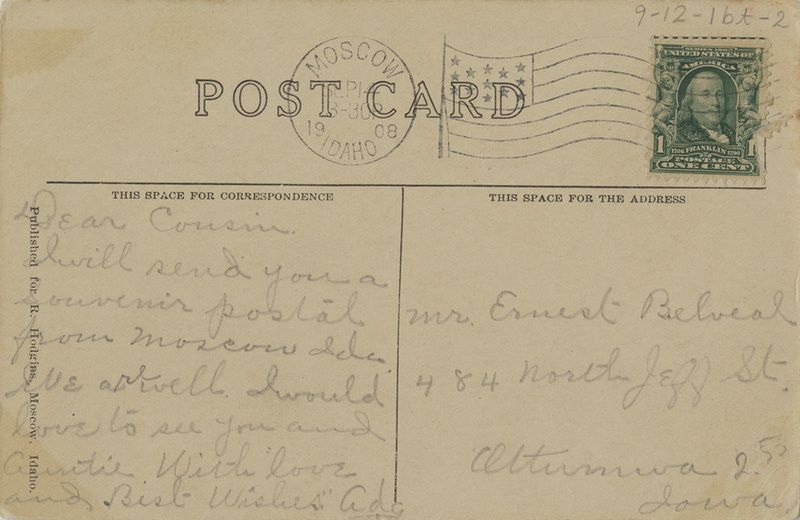 9-12-1bt-2
MOSCOW
SEP 1
8-30P
19 08
IDAHO
SERIES 1902
UNITED STATES OF
AMERICA
1 1
1706 FRANKLIN 1790
POSTAGE
ONE CENT
POST CARD
THIS SPACE FOR CORRESPONDENCE
THIS SPACE FOR THE ADDRESS
Published for R. Hodgins, Moscow, Idaho.
Dear Cousin.
I will send you a
souvenir postal
from Moscow Ida.
We ar well. I would
love to see you and
Auntie With love
and Best Wishes" Ada
Mr. Ernest Belveal
484 North Jeff St.
Ottumwa
Iowa